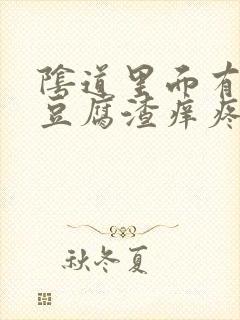 陰道里面有
豆腐渣痒疼
秋冬夏